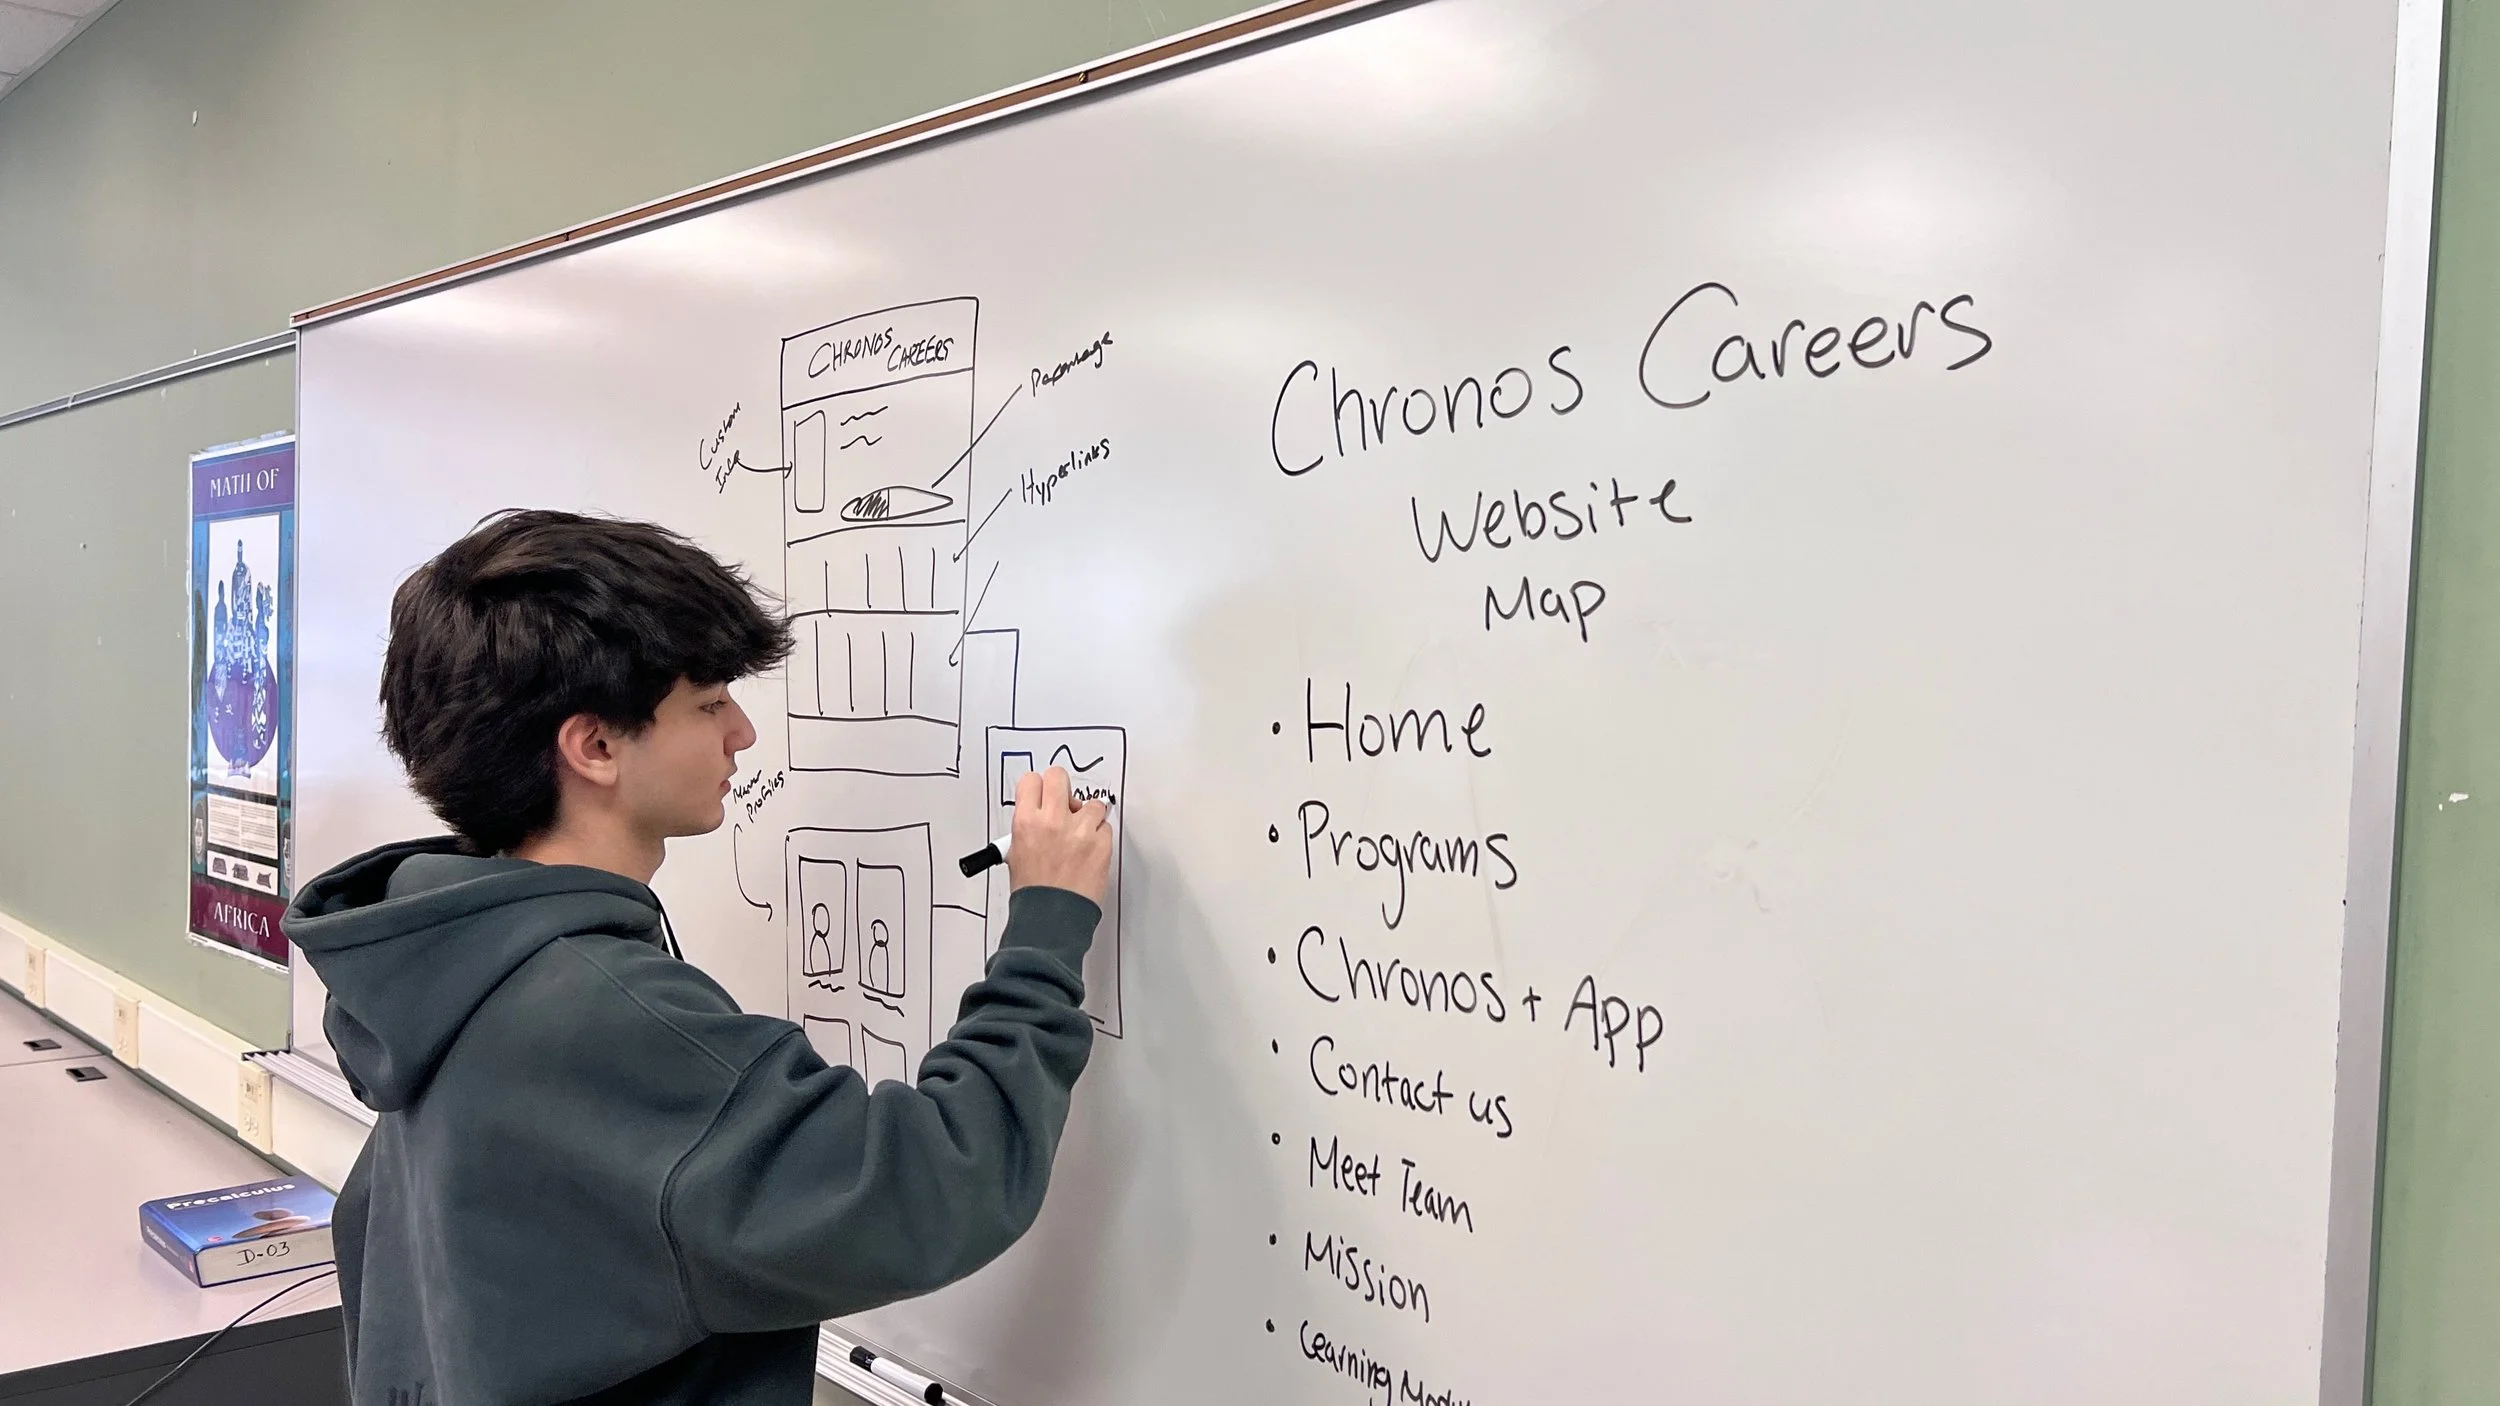 MATH OF
AFRICA
Precalculus
D-03
CHRONOS
CAREERS
Custom
Percentage
Hyperlinks
Profiles
Chronos Careers
Website
Map
• Home
• Programs
• Chronos + App
• Contact us
• Meet Team
• Mission
• Learning